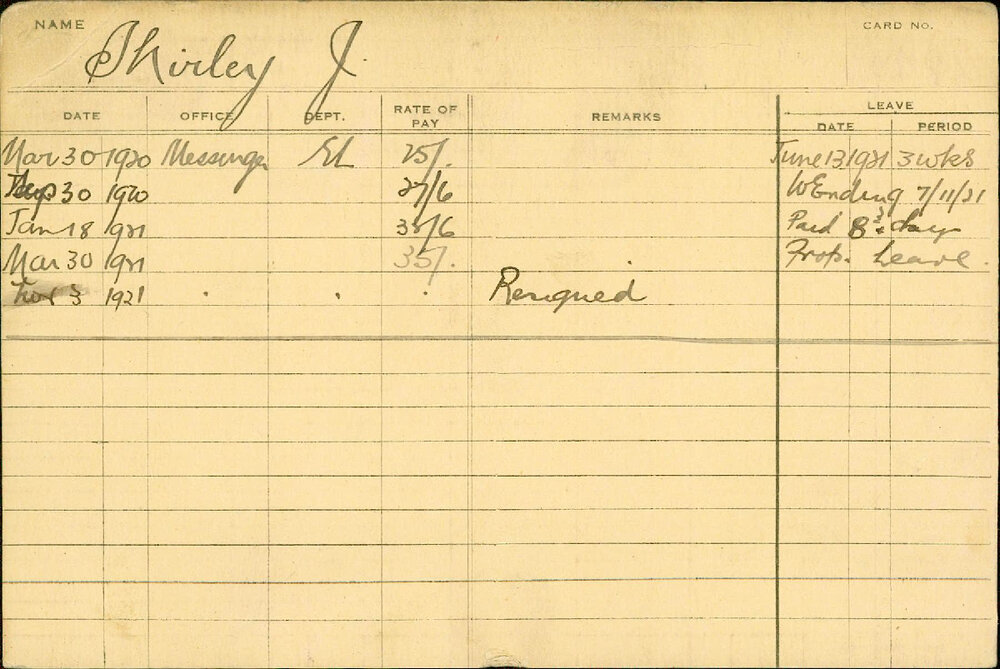 NAME Shirley J. CARD No.
DATE OFFICE DEPT. RATE OF PAY REMARKS LEAVE
DATE PERIOD
Mar 30 1920 Messenger EL 25/. June 13 1921 3 wks
Sep 30 1920 27/6 W Ending 7/11/21
Jan 18 1921 Paid 8 days
Mar 30 1921 35/. Prop. Leave.
3 1921 Resigned